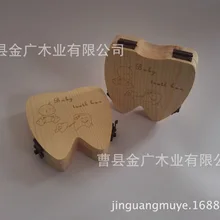 Baby
teeth box
Baby
teeth box
曹县金广木业有限公司
曹县金广木业有限公司
jinguangmuye.1688